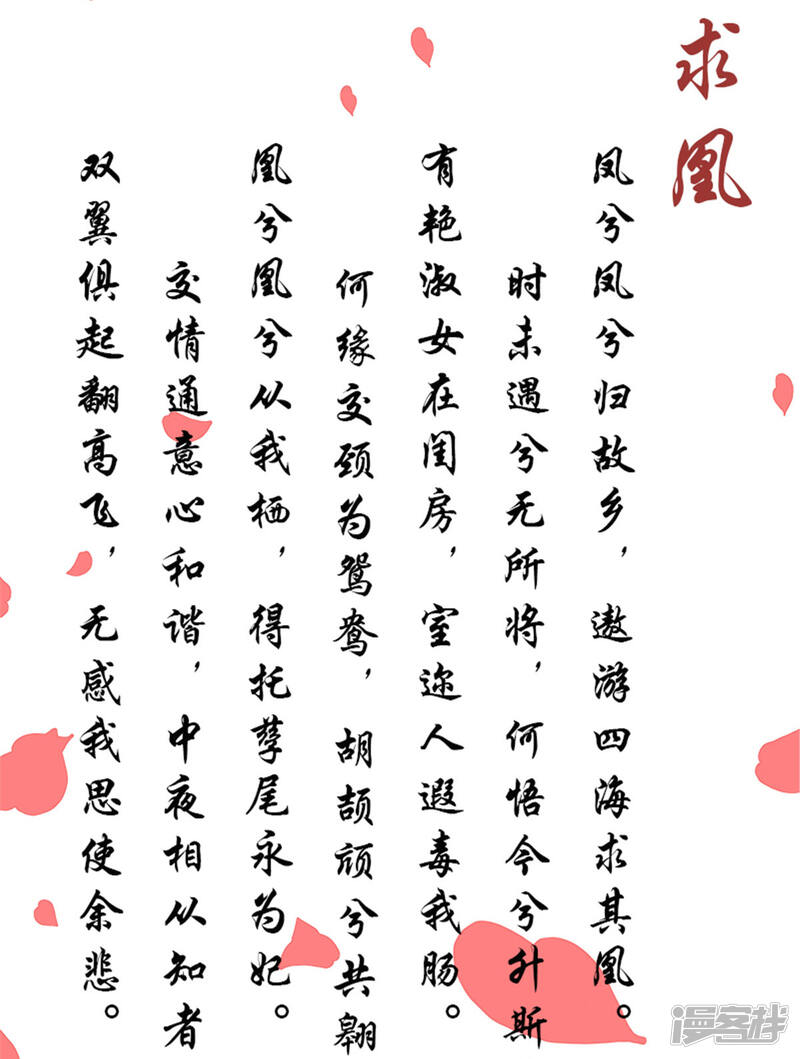 求凰
凤兮凤兮归故乡，遨游四海求其凰。
时未遇兮无所将，何悟今兮升斯
有艳淑女在闺房，室迩人遐毒我肠。
何缘交颈为鸳鸯，胡颉颃兮共翱
凰兮凰兮从我栖，得托孳尾永为妃。
交情通意心和谐，中夜相从知者
双翼俱起翻高飞，无感我思使余悲。
漫客栈